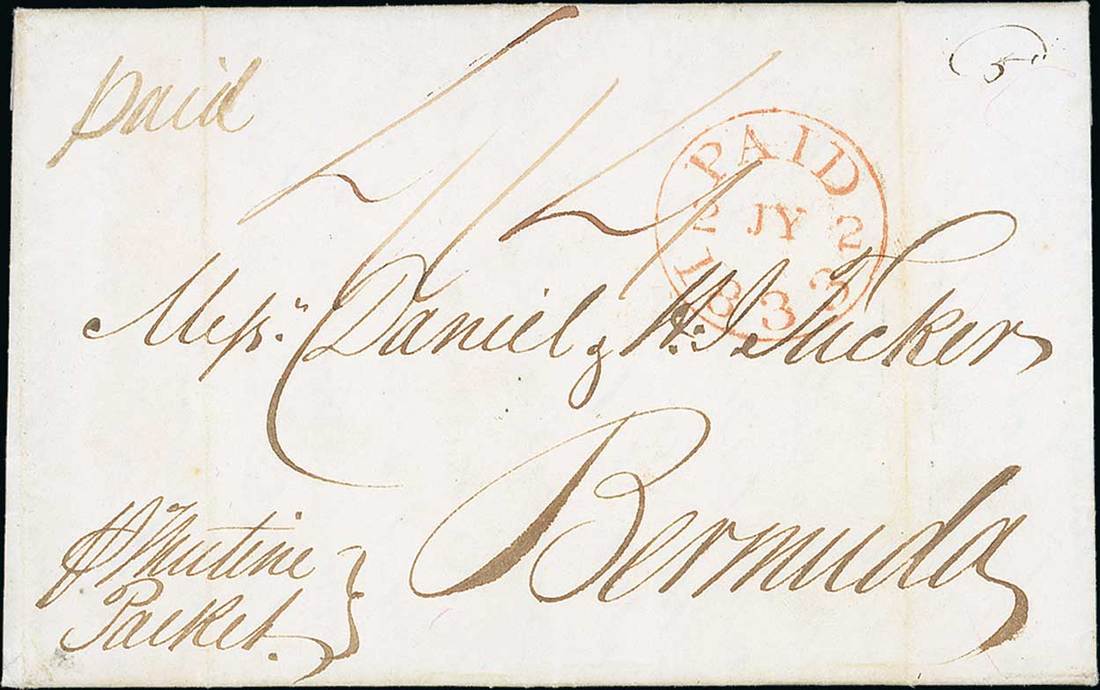 paid
5
4/4
PAID
LS JY 2
1833
Messrs. Daniel & H. J. Tucker
Bermuda
P Mutine
Packet.